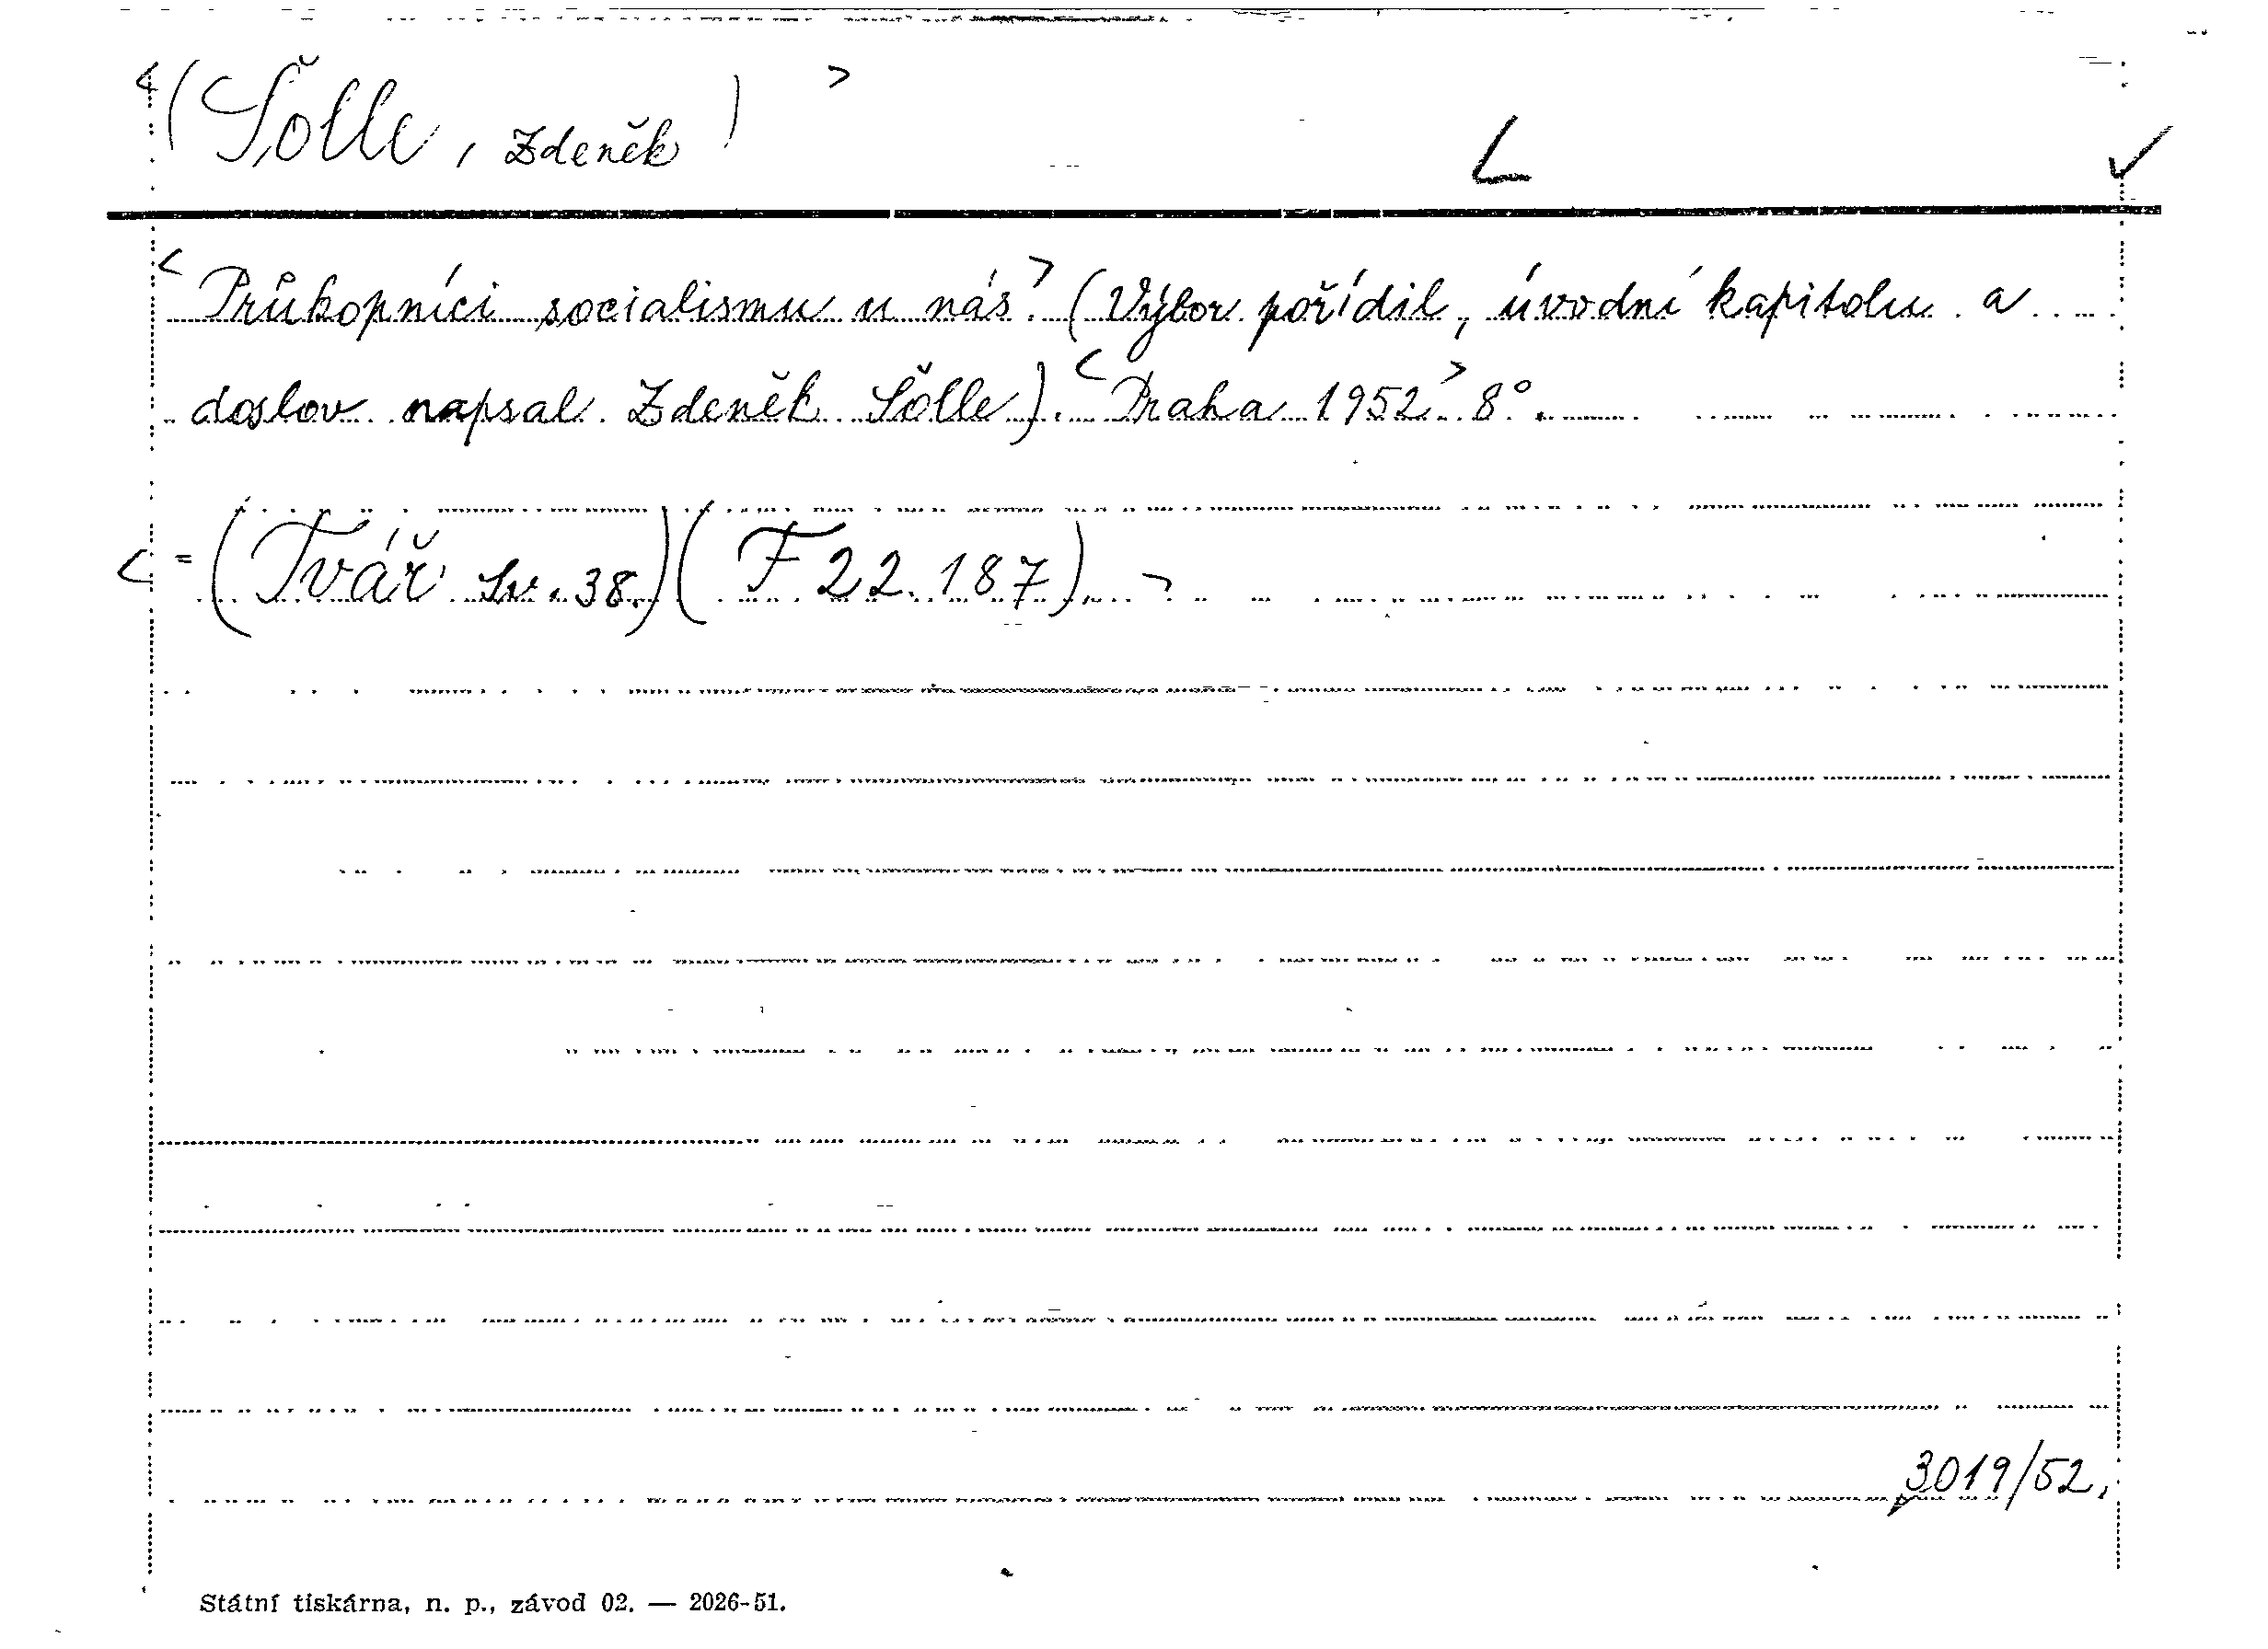 <(Šolle, Zdeněk) >
L ✓
<Průkopníci socialismu u nás.> (Výbor pořídil, úvodní kapitolu a
doslov napsal Zdeněk Šolle). <Praha 1952.> 8°.
< = (Tvář Sv. 38.) (F 22.187). >
3019/52.
Státní tiskárna, n. p., závod 02. — 2026-51.